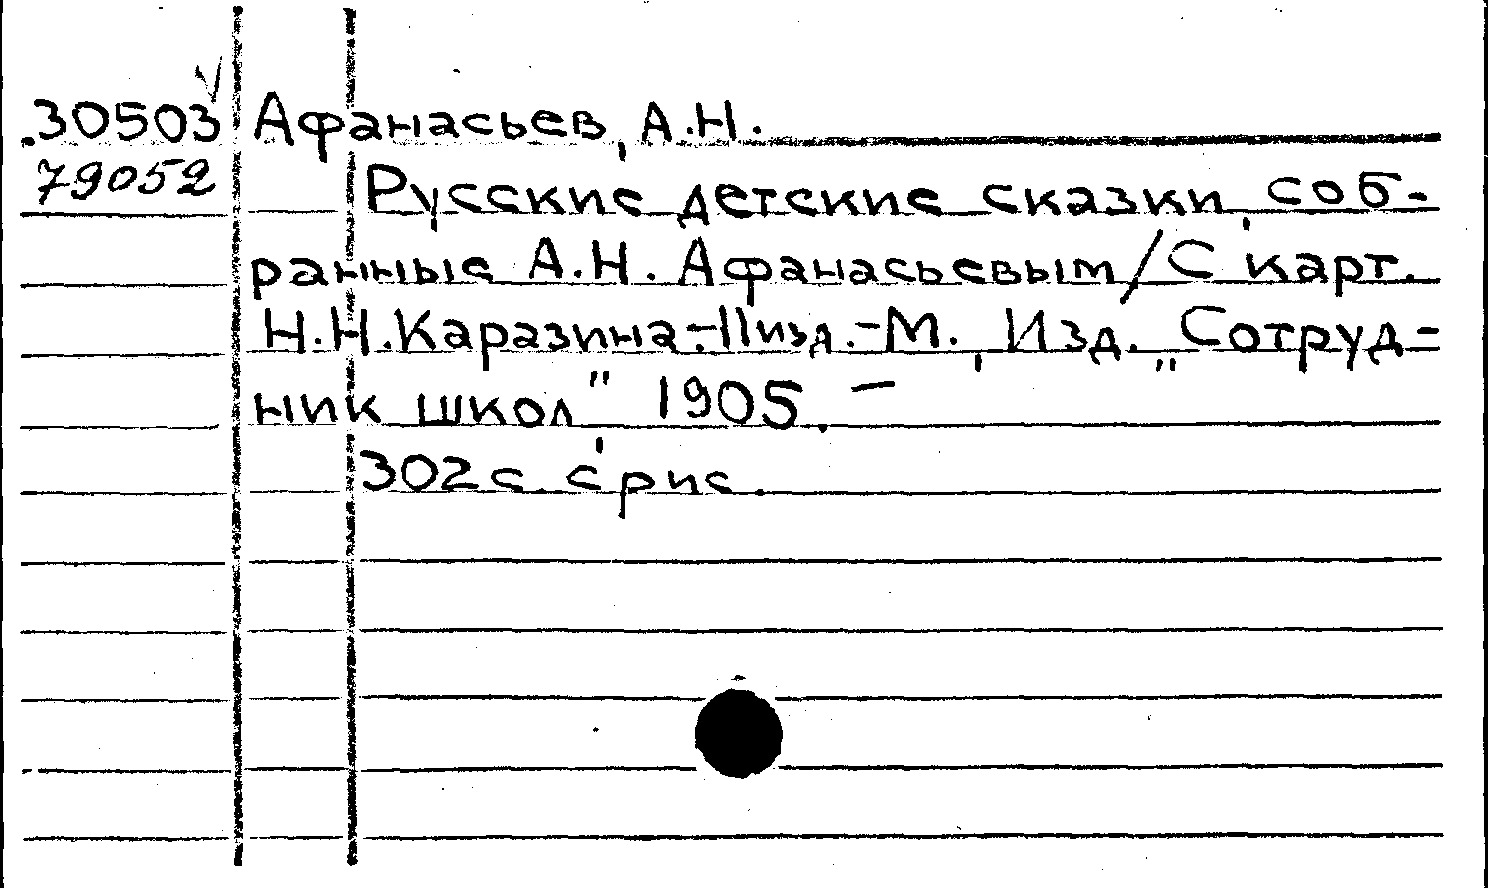 30503 Афанасьев, А.Н.
79052 Русские детские сказки, соб-
ранные А.Н. Афанасьевым/С карт.
Н.Н.Каразина.-11изд.-М., Изд. „Сотруд-
ник школ", 1905. –
302с. с рис.